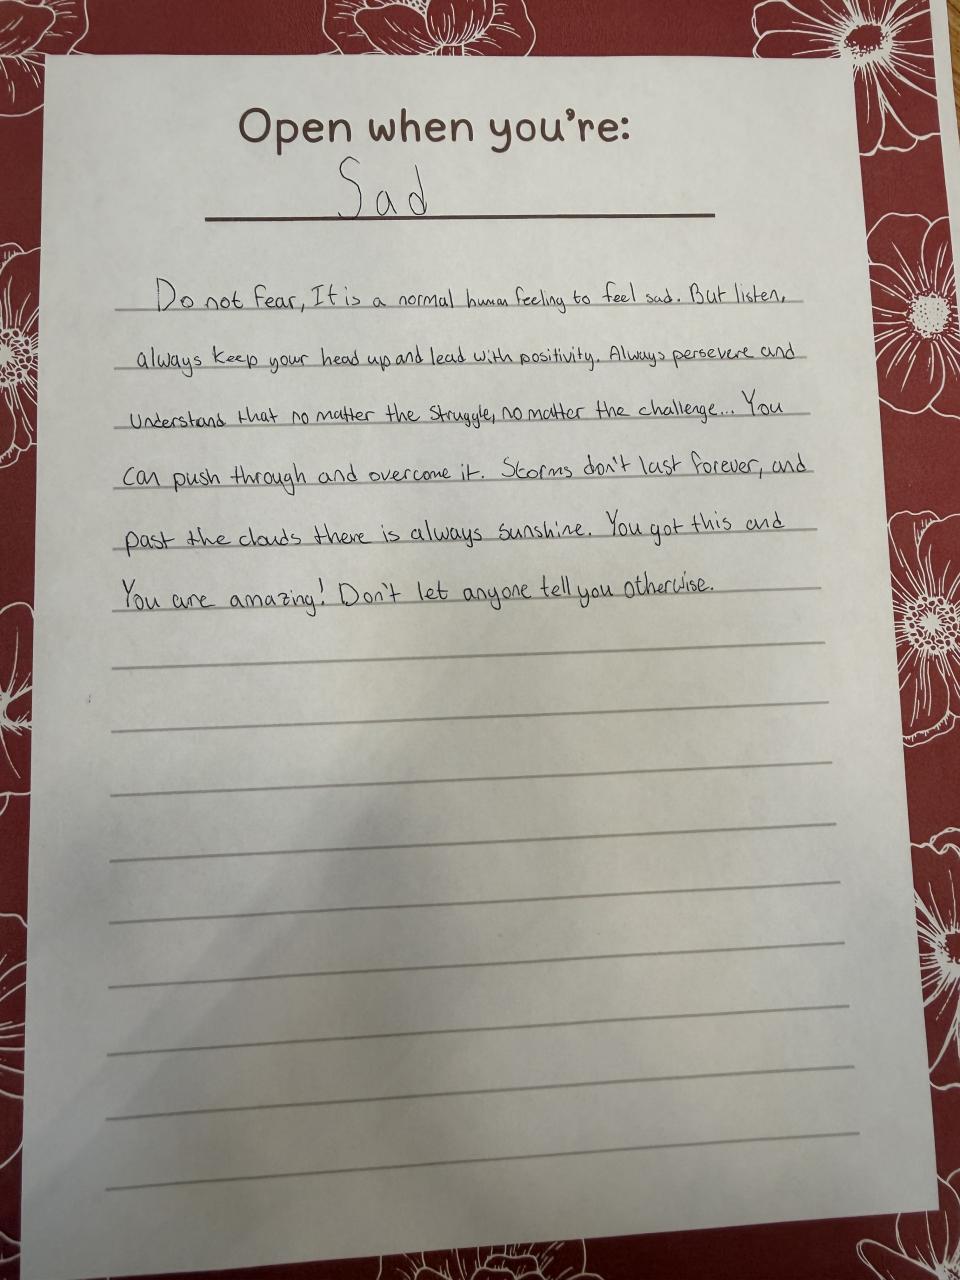 Open when you're:
Sad
Do not fear, It is a normal human feeling to feel sad. But listen,
always keep your head up and lead with positivity. Always persevere and
understand that no matter the struggle, no matter the challenge... You
can push through and overcome it. Storms don't last forever, and
past the clouds there is always sunshine. You got this and
You are amazing! Don't let anyone tell you otherwise.